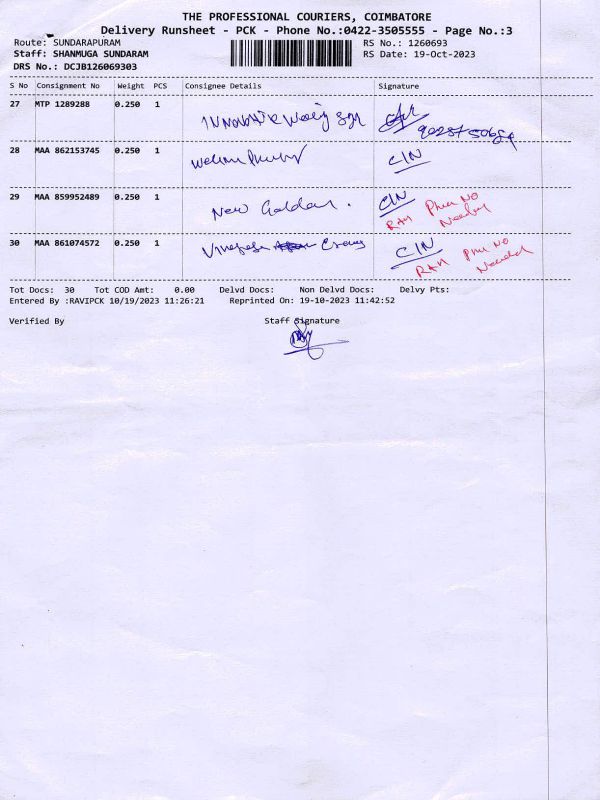 THE PROFESSIONAL COURIERS, COIMBATORE
Delivery Runsheet - PCK - Phone No.:0422-3505555 - Page No.:3
Route: SUNDARAPURAM RS No.: 1260693
Staff: SHANMUGA SUNDARAM RS Date: 19-Oct-2023
DRS No.: DCJB126069303
S No Consignment No Weight PCS Consignee Details Signature
27 MTP 1289288 0.250 1
28 MAA 862153745 0.250 1 CIN
29 MAA 859952489 0.250 1 New Golden. CIN
RAH Phn No
30 MAA 861074572 0.250 1 CIN
RAH Phn No
Needed
Tot Docs: 30 Tot COD Amt: 0.00 Delvd Docs: Non Delvd Docs: Delvy Pts:
Entered By :RAVIPCK 10/19/2023 11:26:21 Reprinted On: 19-10-2023 11:42:52
Verified By Staff Signature